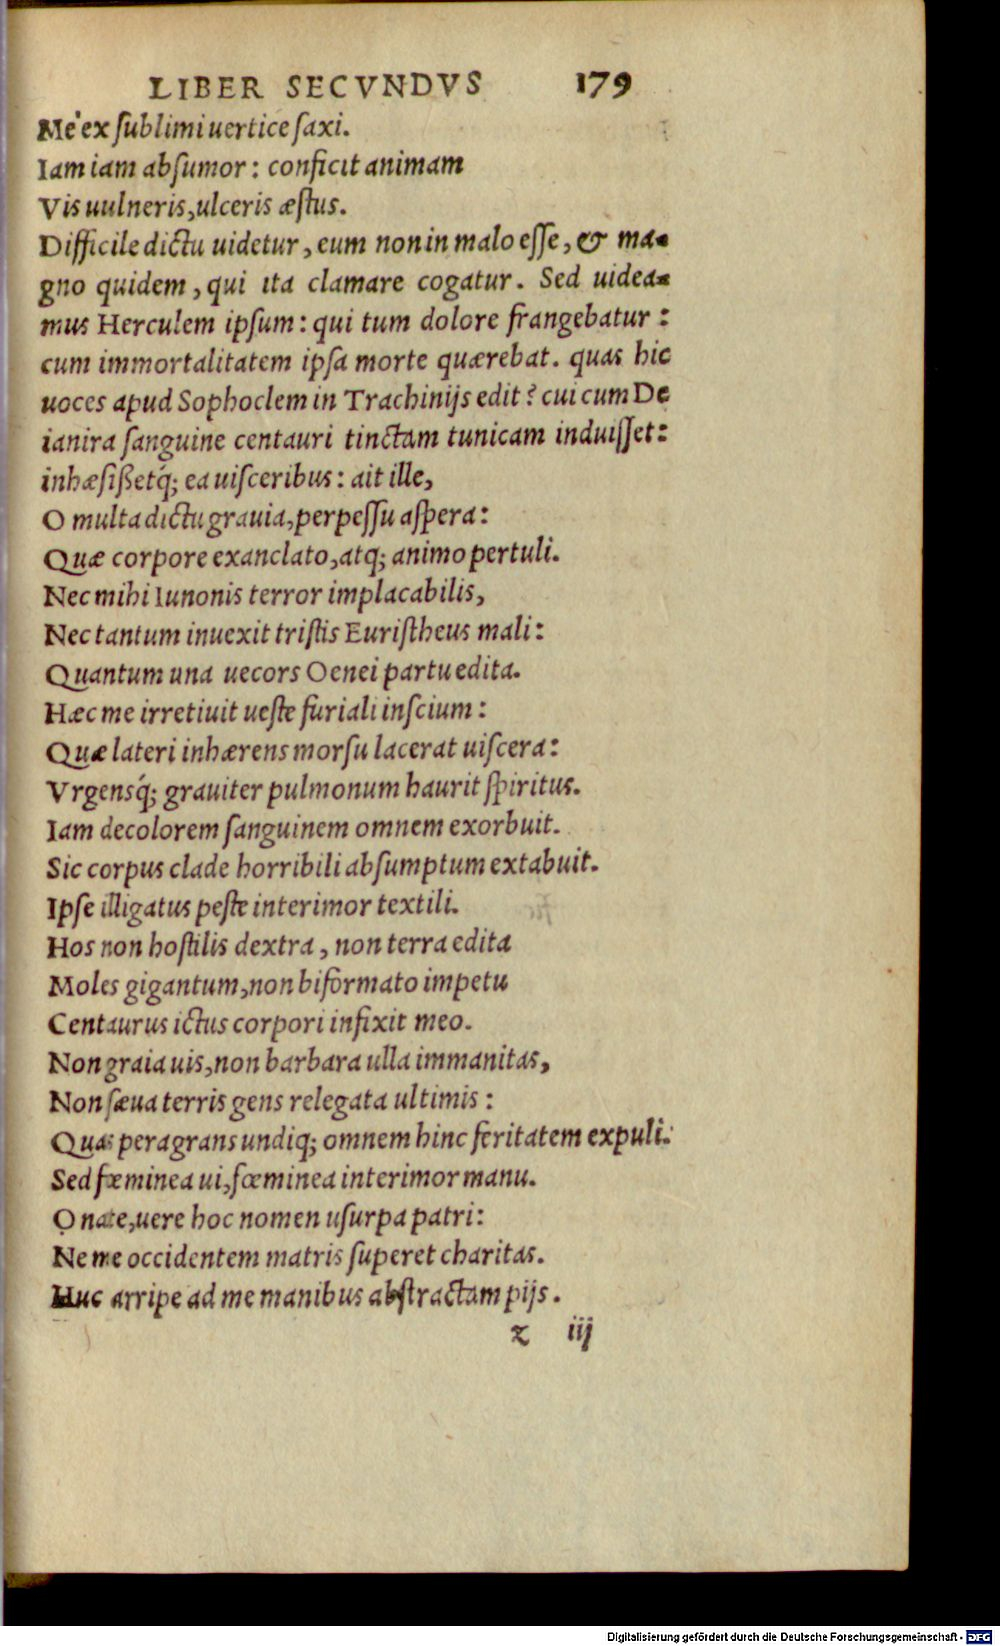 LIBER SECVNDVS 179
Me ex ſublimi uertice ſaxi.
Iam iam abſumor: conficit animam
Vis uulneris, ulceris æſtus.
Difficile dictu uidetur, eum non in malo eſſe, & ma-
gno quidem, qui ita clamare cogatur. Sed uidea-
mus Herculem ipſum: qui tum dolore frangebatur:
cum immortalitatem ipſa morte quærebat. quas hic
uoces apud Sophoclem in Trachinijs edit? cui cum De
ianira ſanguine centauri tinctam tunicam induiſſet:
inhæſißetq́; ea uiſceribus: ait ille,
O multa dictu grauia, perpeſſu aſpera:
Quæ corpore exanclato, atq; animo pertuli.
Nec mihi Iunonis terror implacabilis,
Nec tantum inuexit triſtis Euriſtheus mali:
Quantum una uecors Oenei partu edita.
Hæc me irretiuit ueſte furiali inſcium:
Quæ lateri inhærens morſu lacerat uiſcera:
Vrgensq́; grauiter pulmonum haurit ſpiritus.
Iam decolorem ſanguinem omnem exorbuit.
Sic corpus clade horribili abſumptum extabuit.
Ipſe illigatus peſte interimor textili.
Hos non hoſtilis dextra, non terra edita
Moles gigantum, non biformato impetu
Centaurus ictus corpori infixit meo.
Non graia uis, non barbara ulla immanitas,
Non ſæua terris gens relegata ultimis:
Quas peragrans undiq; omnem hinc feritatem expuli.
Sed fœminea ui, fœminea interimor manu.
O nate, uere hoc nomen uſurpa patri:
Ne me occidentem matris ſuperet charitas.
Huc arripe ad me manibus abſtractam pijs.
z iij
Digitalisierung gefördert durch die Deutsche Forschungsgemeinschaft - DFG